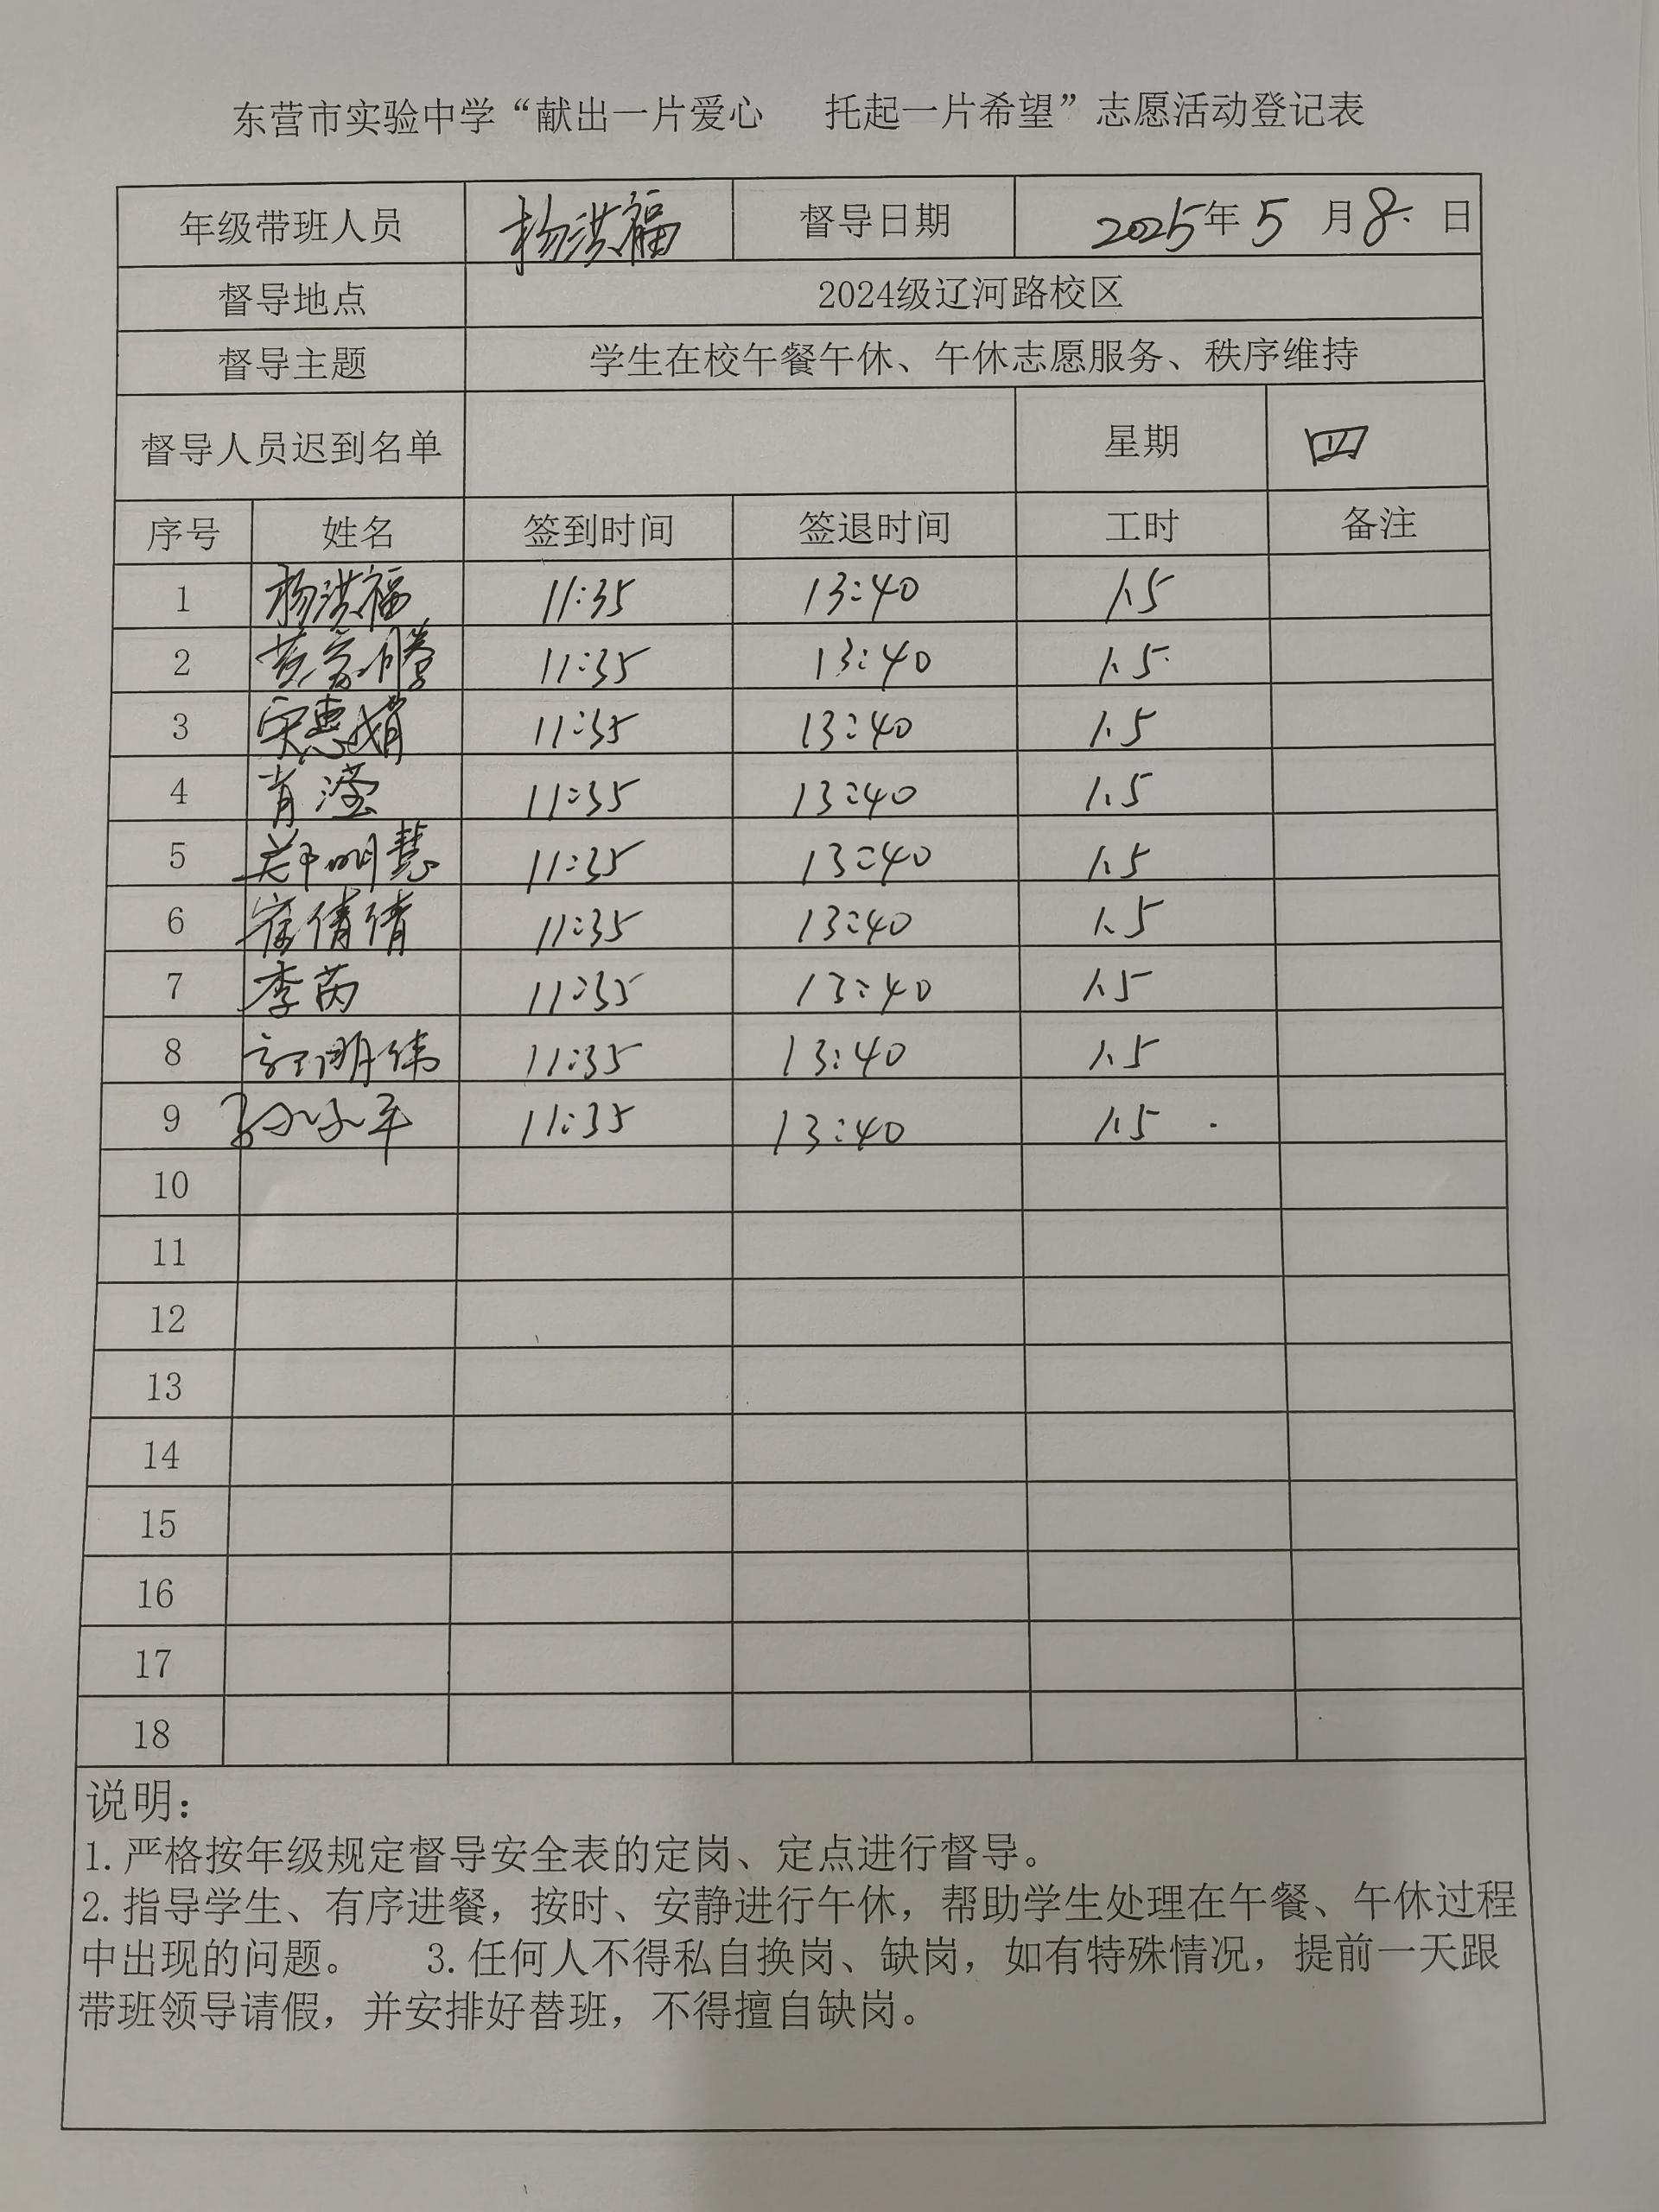 东营市实验中学“献出一片爱心 托起一片希望”志愿活动登记表
年级带班人员 杨洪福 督导日期 2025年5月8日
督导地点 2024级辽河路校区
督导主题 学生在校午餐午休、午休志愿服务、秩序维持
督导人员迟到名单 星期 四
序号 姓名 签到时间 签退时间 工时 备注
1 杨洪福 11:35 13:40 1.5
2 11:35 13:40 1.5
3 宋惠娟 11:35 13:40 1.5
4 肖滢 11:35 13:40 1.5
5 郑明慧 11:35 13:40 1.5
6 崔倩倩 11:35 13:40 1.5
7 李芮 11:35 13:40 1.5
8 11:35 13:40 1.5
9 11:35 13:40 1.5
10
11
12
13
14
15
16
17
18
说明：
1.严格按年级规定督导安全表的定岗、定点进行督导。
2.指导学生、有序进餐，按时、安静进行午休，帮助学生处理在午餐、午休过程
中出现的问题。 3.任何人不得私自换岗、缺岗，如有特殊情况，提前一天跟
带班领导请假，并安排好替班，不得擅自缺岗。